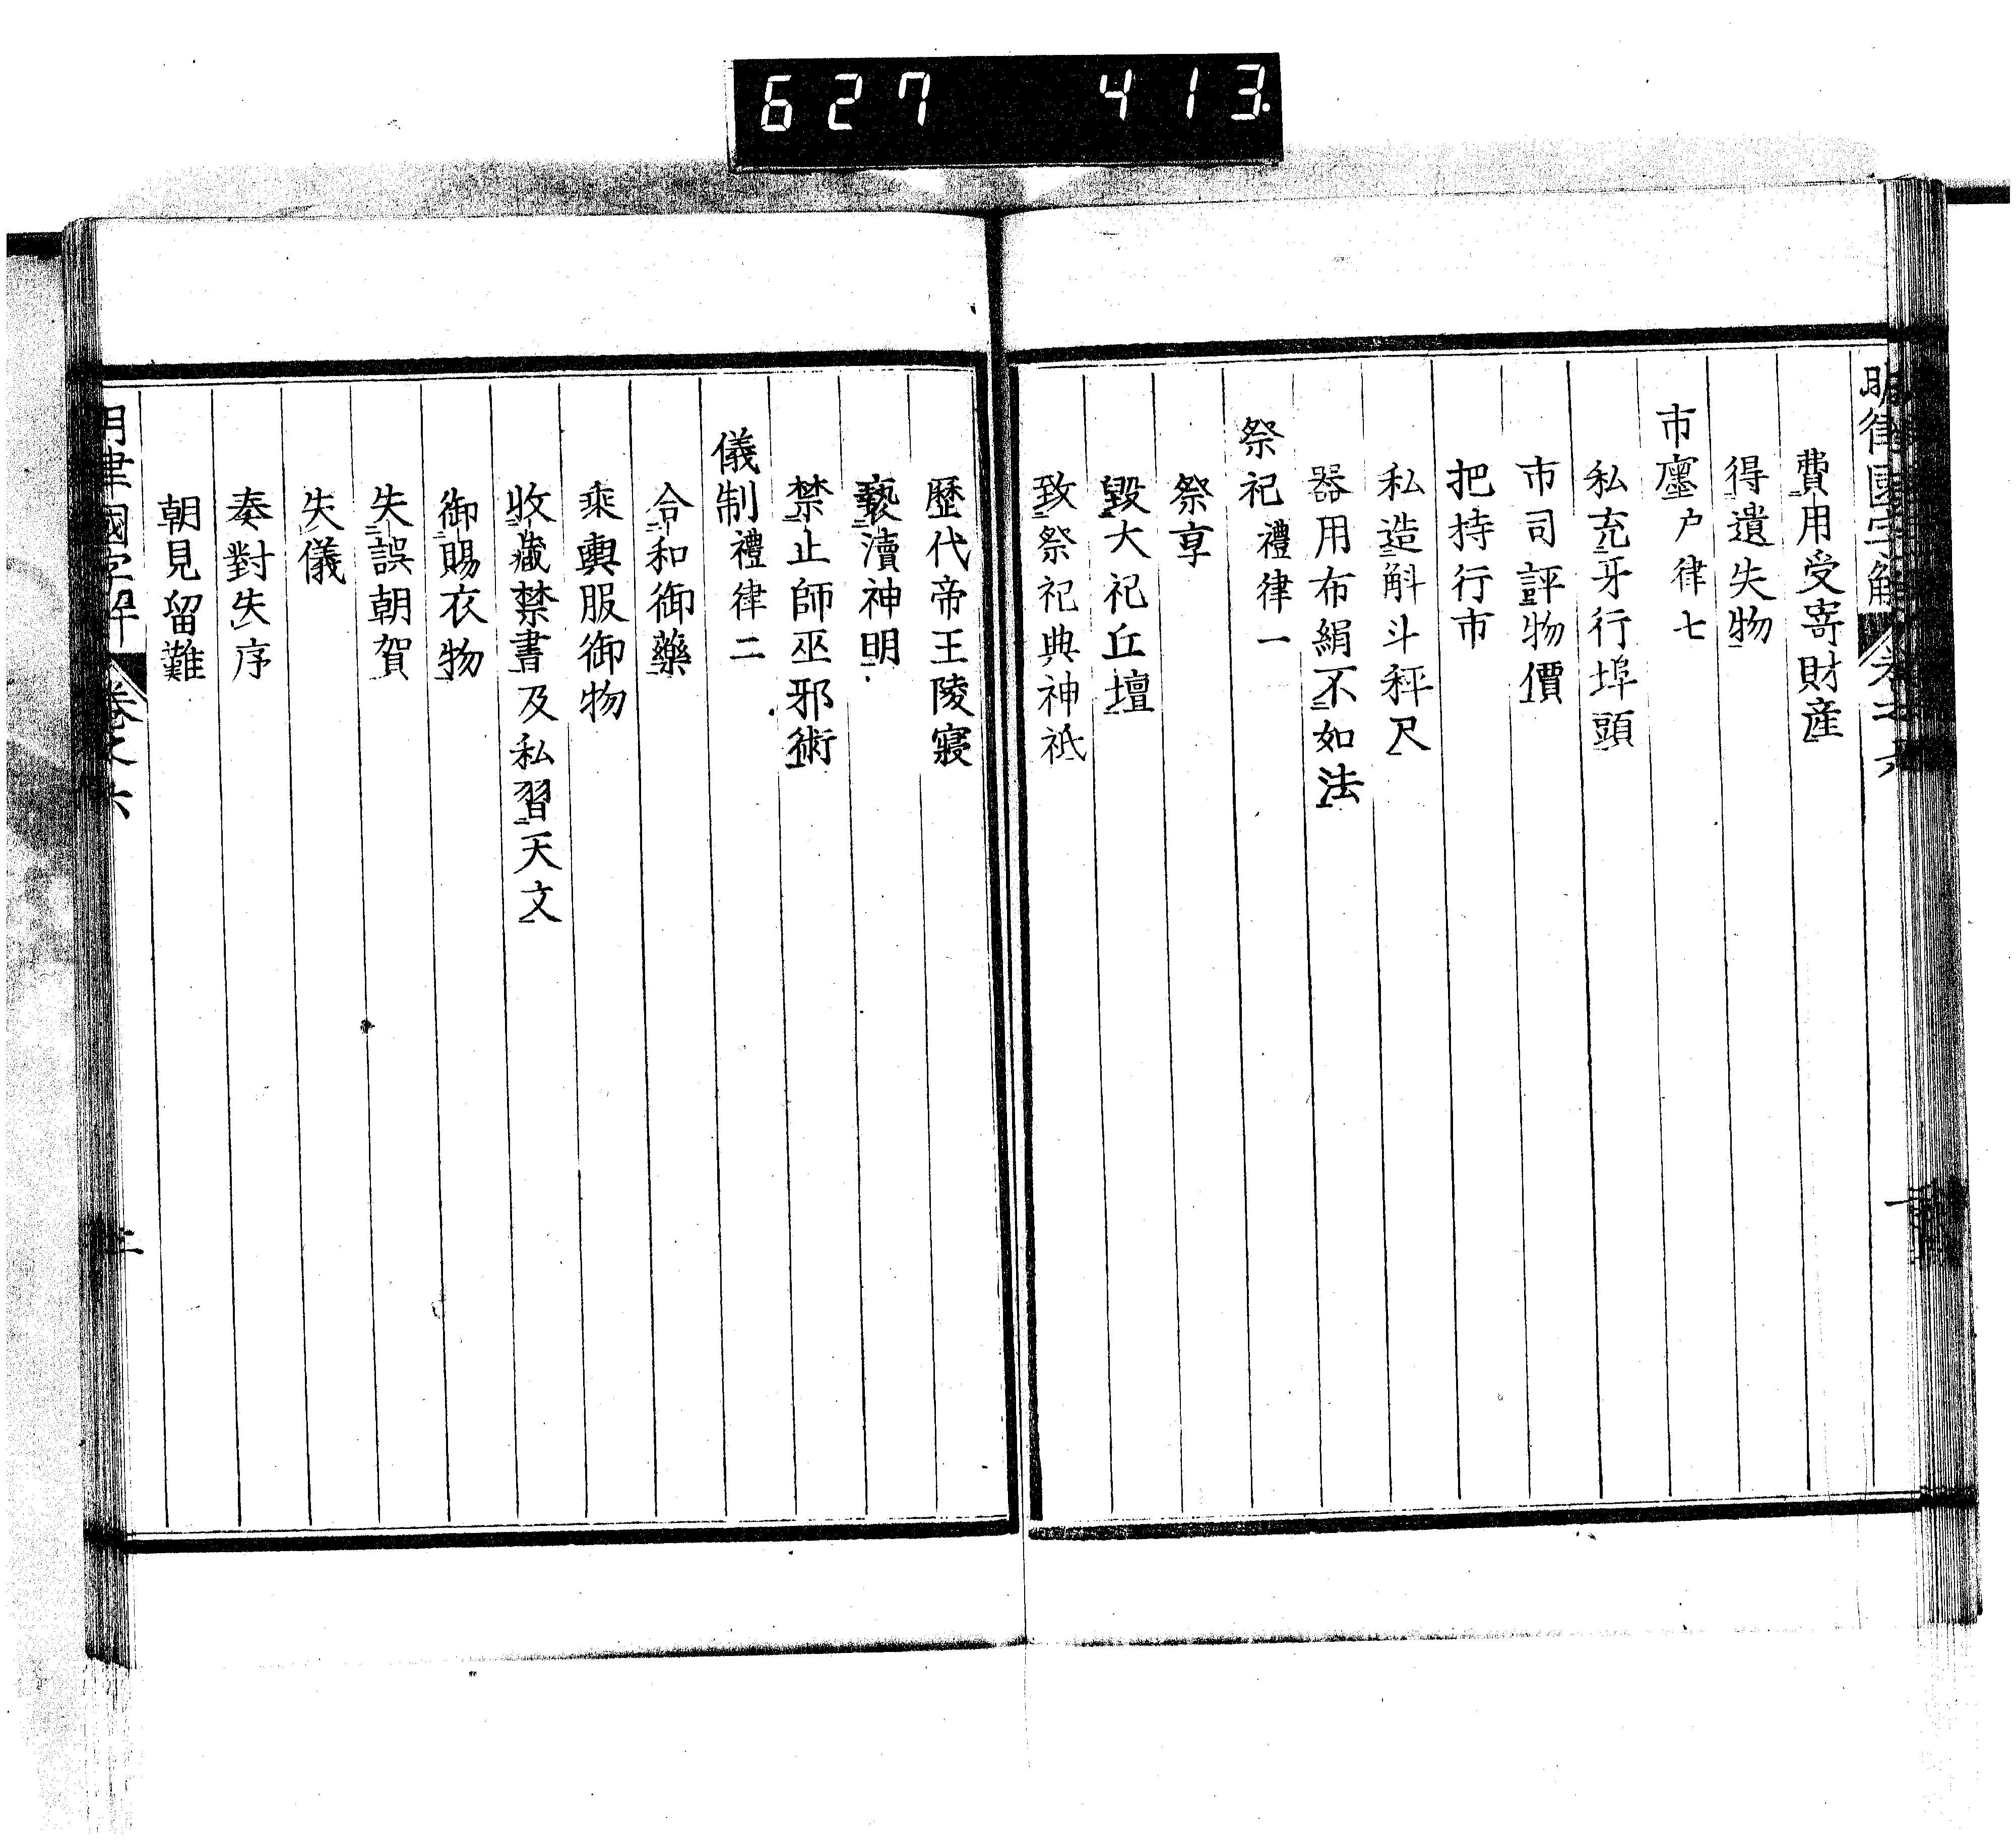 627 413
明律國字解 卷之六
費用受寄財産
得遺失物
市廛户律七
私充牙行埠頭
市司評物價
把持行市
私造斛斗秤尺
器用布絹不如法
祭祀禮律一
祭享
毀大祀丘壇
致祭祀典神祇
歷代帝王陵寢
褻瀆神明
禁止師巫邪術
儀制禮律二
合和御藥
乘輿服御物
收藏禁書及私習天文
御賜衣物
失誤朝賀
失儀
奏對失序
朝見留難
明律國字解 卷之六